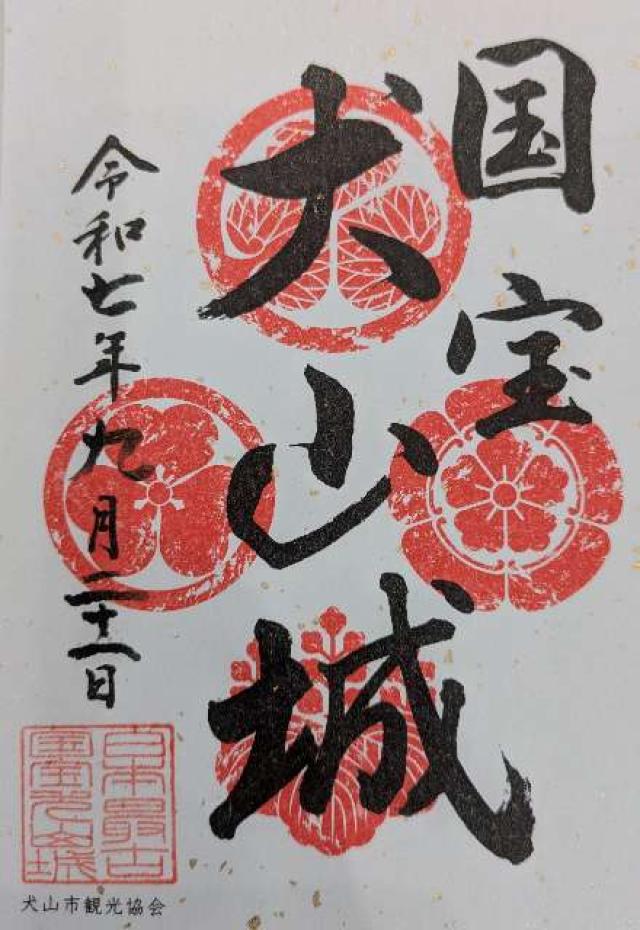 国宝
犬山城
令和七年九月二十一日
日本最古
国宝犬山城
犬山市観光協会